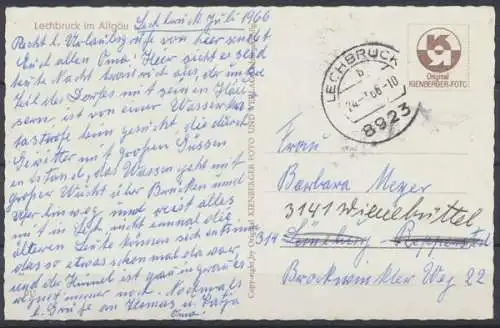 Lechbruck im Allgäu
Lechbruck Juli 1966
Recht l. Urlaubsgrüße von hier sendet
Euch allen Oma! Hier sieht es
heute Nacht traurig aus, der
Teil des Dorfes mit seinen Häu
sern, ist von einer Wasserka
tastrofe heim gesucht, die durch
Gewitter mit großen Güssen
entstand, das Wasser geht mit
großer Wucht über Brücken und
Ufer hinweg, und reist alles
mit u. sich nicht einmal die
älteren Leute können sich entsinnen
das so etwas schon mal da war
und der Himmel ist ganz grau es
regnet immer noch. Nochmals
l. Grüße an Thomas u. Katja
Oma.
Copyright by Original KIENBERGER FOTO UND
Original
KIENBERGER-FOTO
LECHBRUCK
b
-10
8923
Frau
Barbara Meyer
3141 Wienebüttel
314 Lüneburg Reppenstedt
Brockwinkler Weg 22